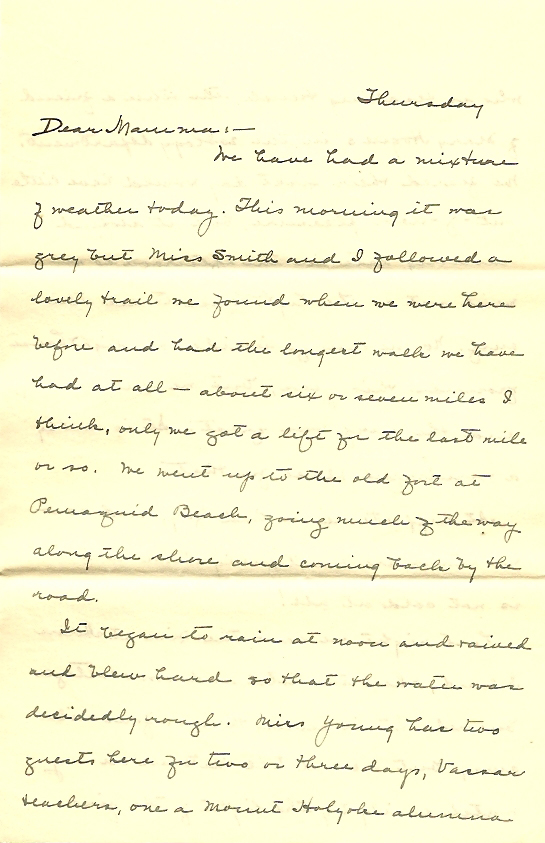 Thursday
Dear Mamma:—
We have had a mixture
of weather today. This morning it was
grey but Miss Smith and I followed a
lovely trail we found when we were here
before and had the longest walk we have
had at all — about six or seven miles I
think, only we got a lift for the last mile
or so. We went up to the old fort at
Pemaquid Beach, going much of the way
along the shore and coming back by the
road.
It began to rain at noon and rained
and blew hard so that the water was
decidedly rough. Miss Young has two
guests here for two or three days, Vassar
teachers, one a Mount Holyoke alumna